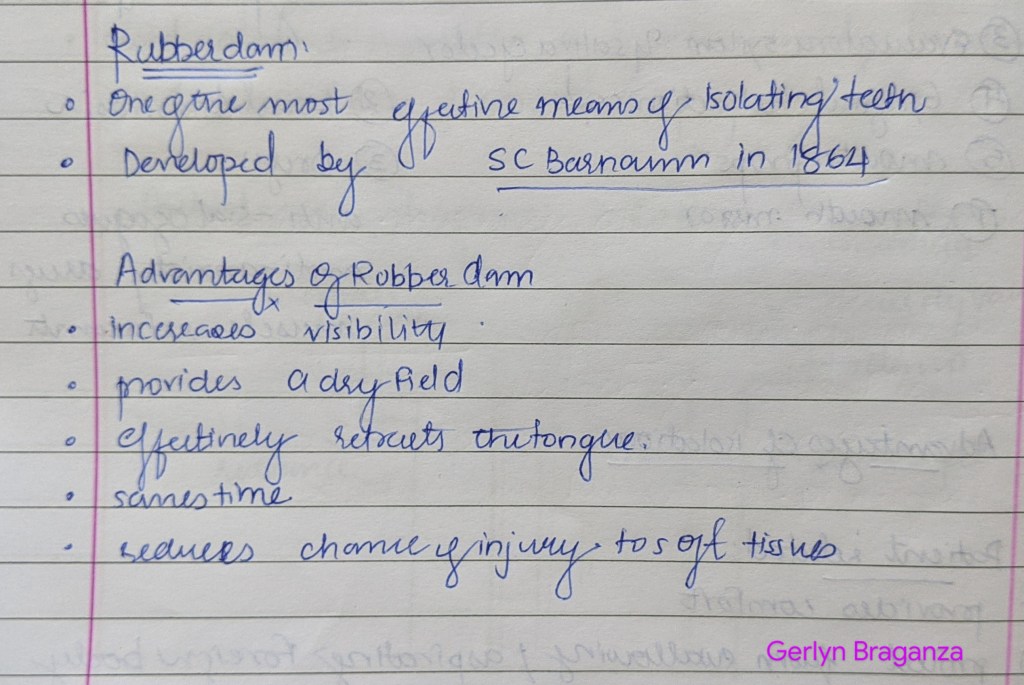 Rubberdam:
• One of the most effective means of Isolating teeth
• Developed by SC Barnaum in 1864
Advantages of Robber dam
• increases visibility
• provides a dry field
• effectively retracts the tongue.
• saves time
• reduces chance of injury to soft tissues
Gerlyn Braganza